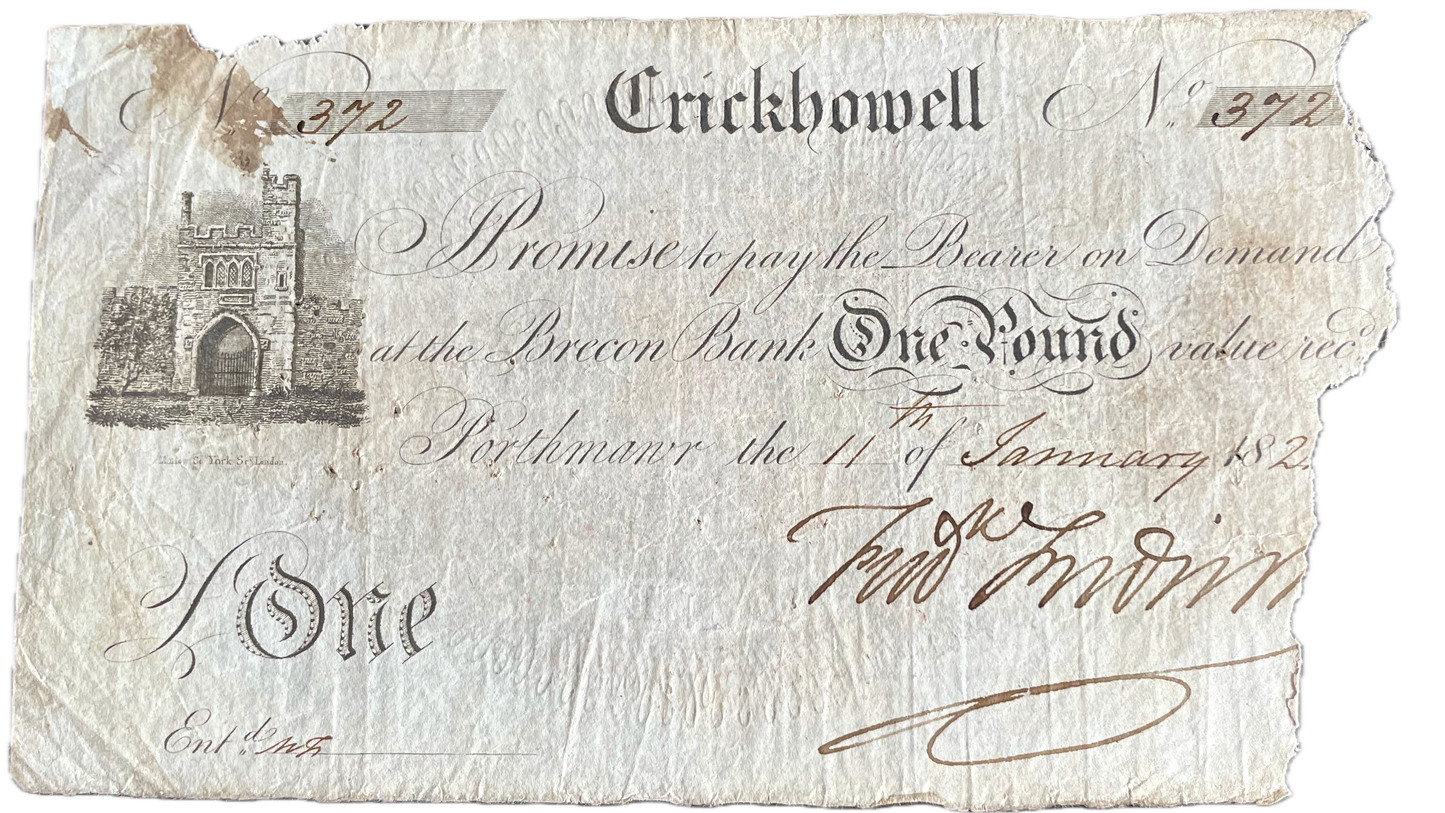 No 372 Crickhowell No 372
Promise to pay the Bearer on Demand
at the Brecon Bank One Pound value rec
Porthmawr the 11th of January 182
York St London.
£ One
Entd